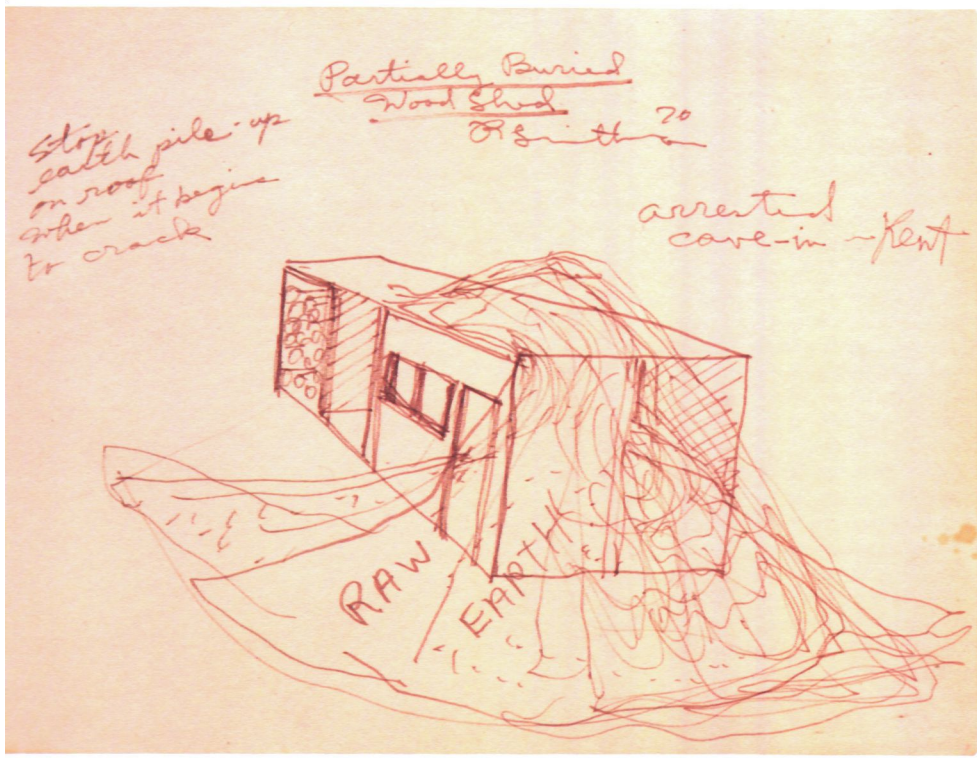 Partially Buried
Wood Shed
R Smithson 70
Stop
earth pile-up
on roof
when it begins
to crack
arrested
cave-in - Kent
RAW
EARTH